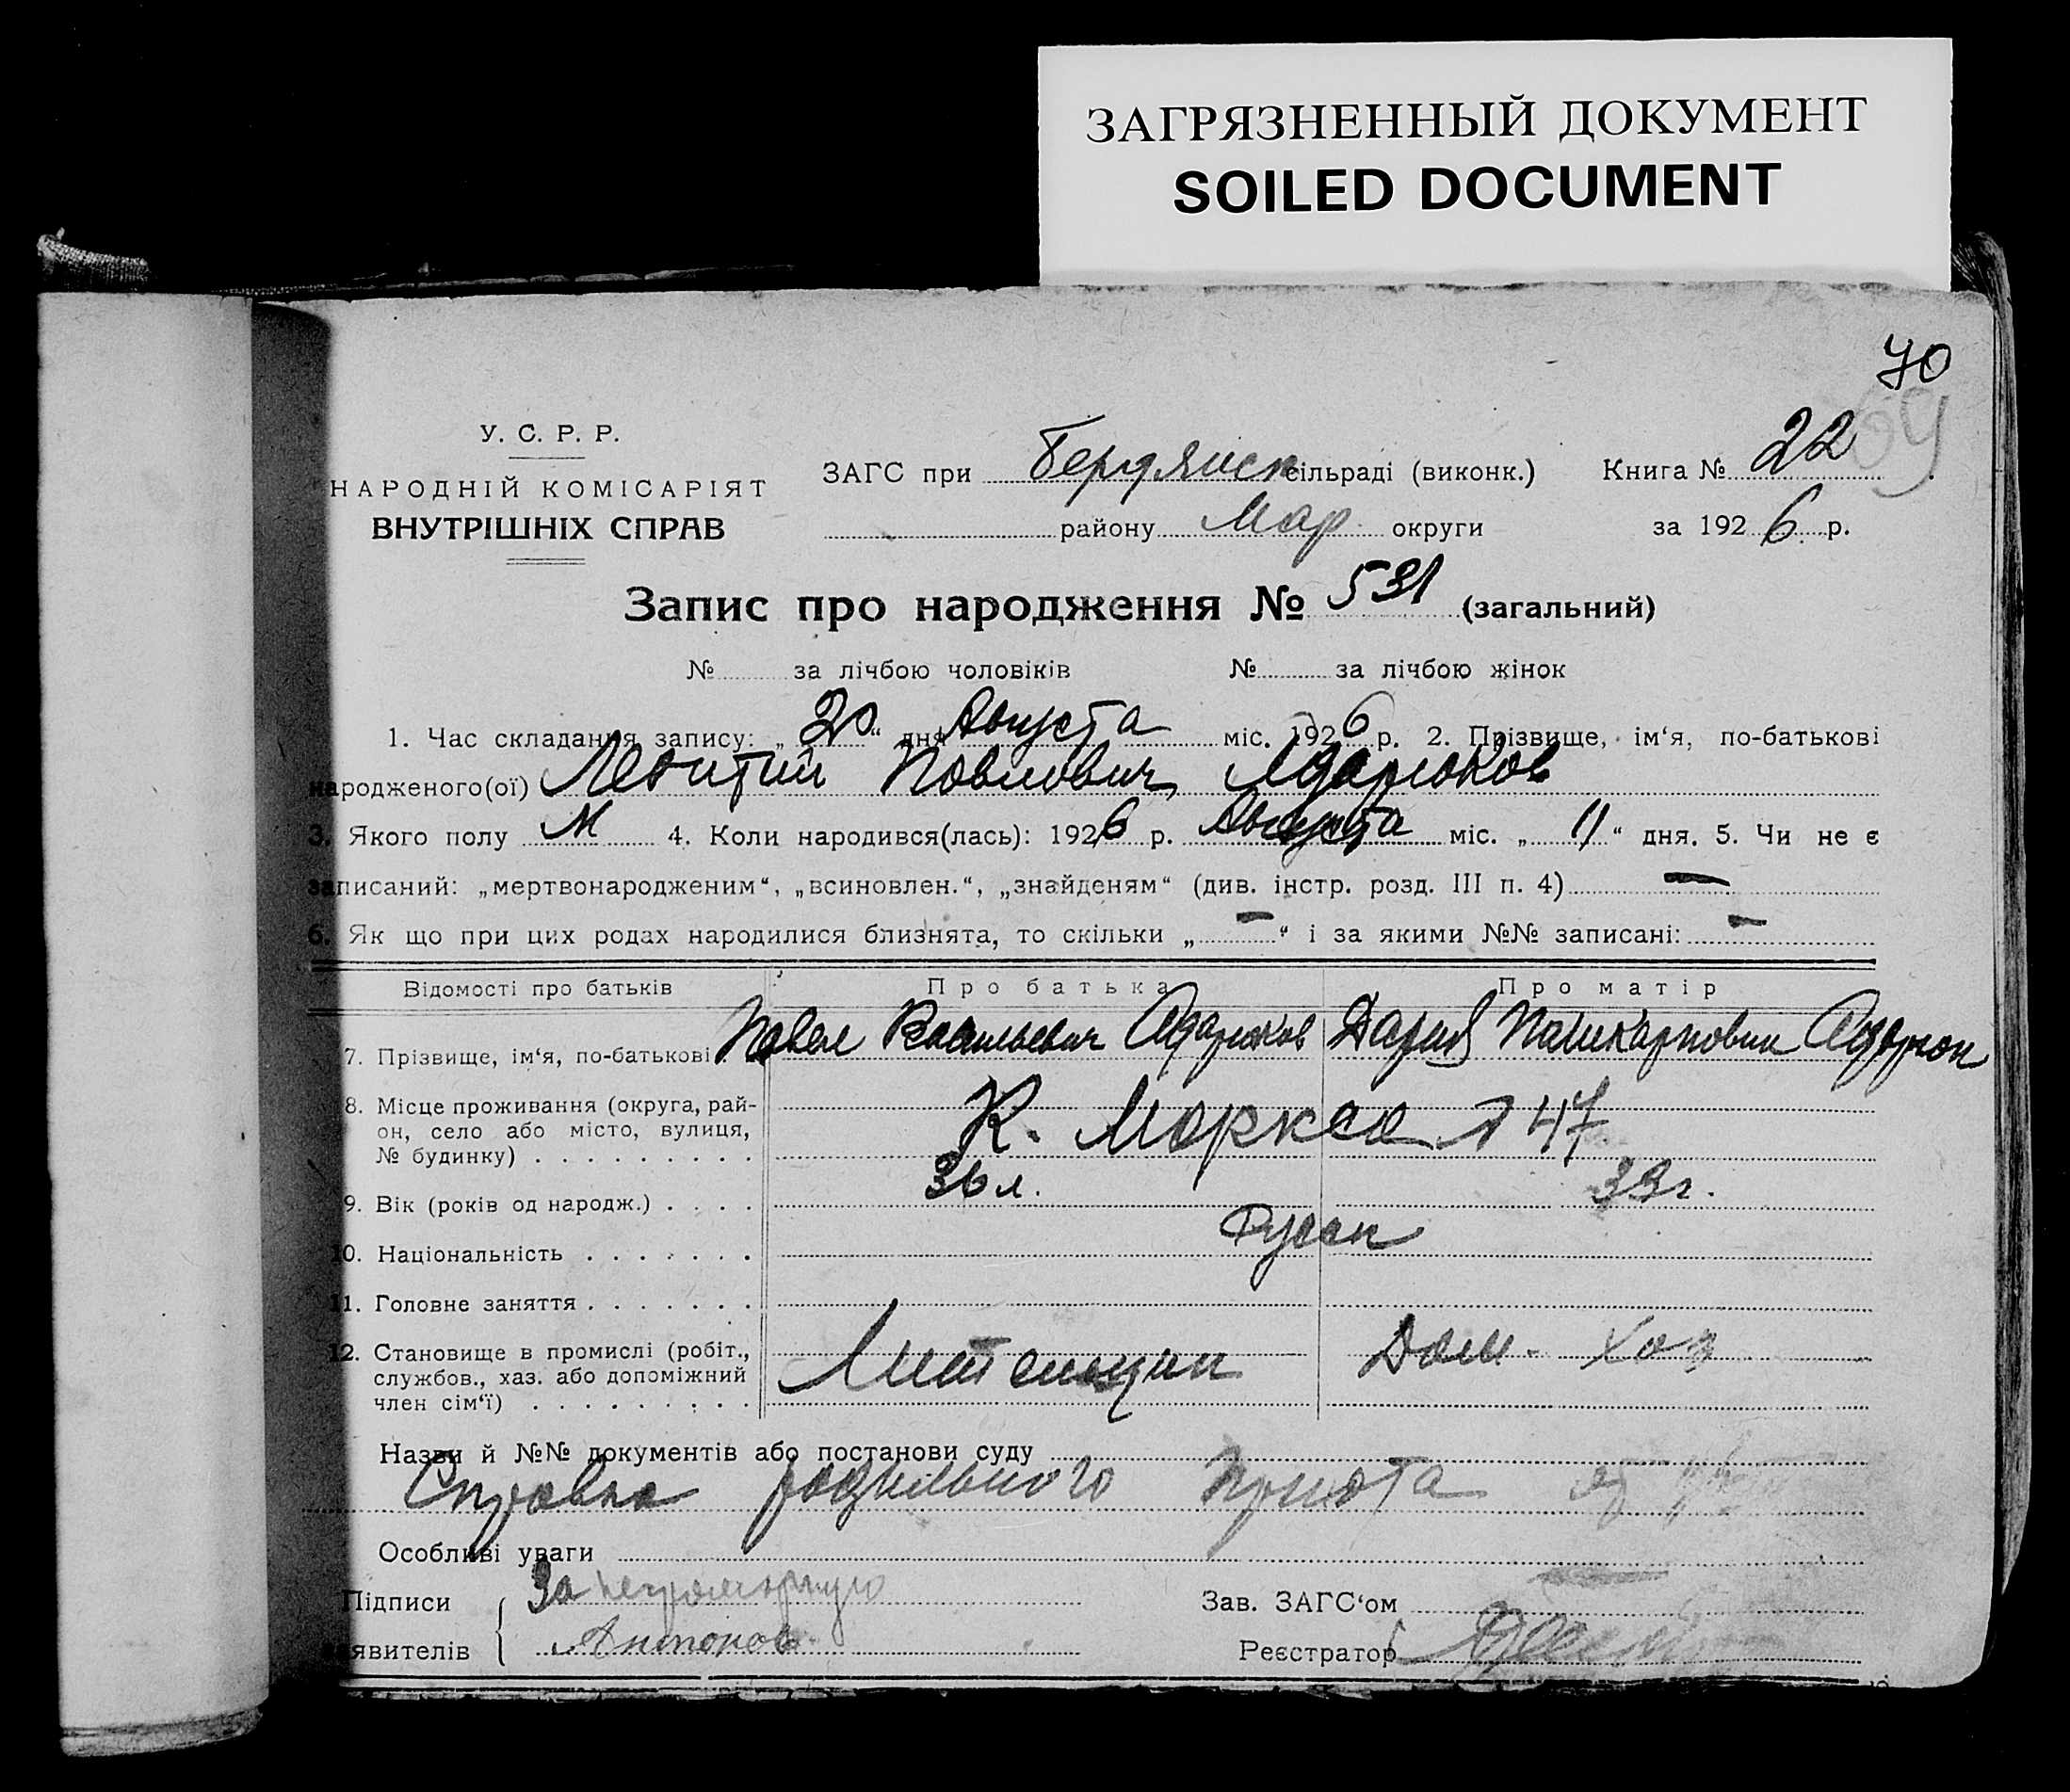 ЗАГРЯЗНЕННЫЙ ДОКУМЕНТ
SOILED DOCUMENT
70
69
У. С. Р. Р.
НАРОДНІЙ КОМІСАРІЯТ
ВНУТРІШНІХ СПРАВ
ЗАГС при Бердянск сільраді (виконк.) Книга № 22
району Мар. округи за 1926 р.
Запис про народження № 531 (загальний)
№ за лічбою чоловіків № за лічбою жінок
1. Час складання запису: „20“ дня Августа міс. 1926 р. 2. Прізвище, ім‘я, по-батькові
народженого(ої) Леонтий Павлович Адарюков
3. Якого полу М 4. Коли народився(лась): 1926 р. Августа міс. „11“ дня. 5. Чи не є
записаний: „мертвонародженим“, „всиновлен.“, „знайденям“ (див. інстр. розд. III п. 4) —
6. Як що при цих родах народилися близнята, то скільки „—“ і за якими №№ записані: —
Відомості про батьків Про батька Про матір
7. Прізвище, ім‘я, по-батькові Павел Васильевич Адарюков Дария Адарюков
8. Місце проживання (округа, рай-
он, село або місто, вулиця,
№ будинку) . . . . . . . . . К. Маркса № 47
9. Вік (років од народж.) . . . . 36 л. 33 г.
10. Національність . . . . . . . Русск
11. Головне заняття . . . . . . .
12. Становище в промислі (робіт.,
службов., хаз. або допоміжний
член сім‘ї) . . . . . . . . . Дом. Хоз
Назви й №№ документів або постанови суду
Справка родильного приюта от
Особливі уваги
Підписи За неграмотную Зав. ЗАГС‘ом
явителів Антонов Реєстратор